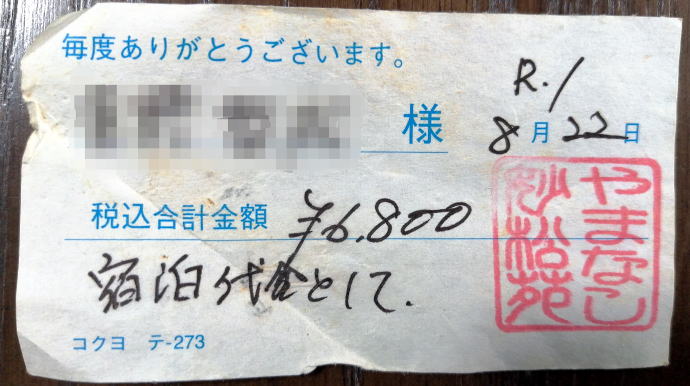 毎度ありがとうございます。
様
R.1
8月22日
税込合計金額 ¥6,800
宿泊代金として.
やまなし
妙松苑
コクヨ テ-273